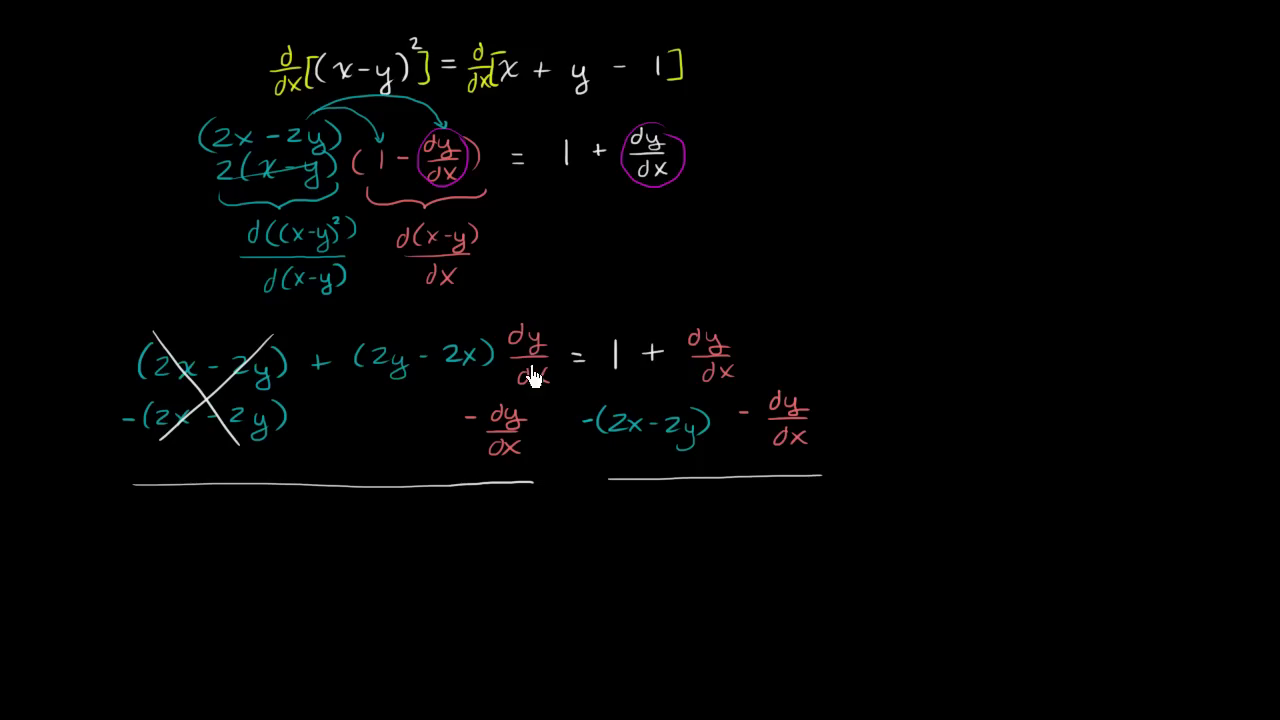 d/dx[(x-y)²] = d/dx[x + y - 1]
(2x - 2y)
2(x-y) (1 - dy/dx) = 1 + dy/dx
d((x-y)²)/d(x-y) d(x-y)/dx
(2x - 2y) + (2y - 2x) dy/dx = 1 + dy/dx
-(2x - 2y) - dy/dx -(2x-2y) - dy/dx